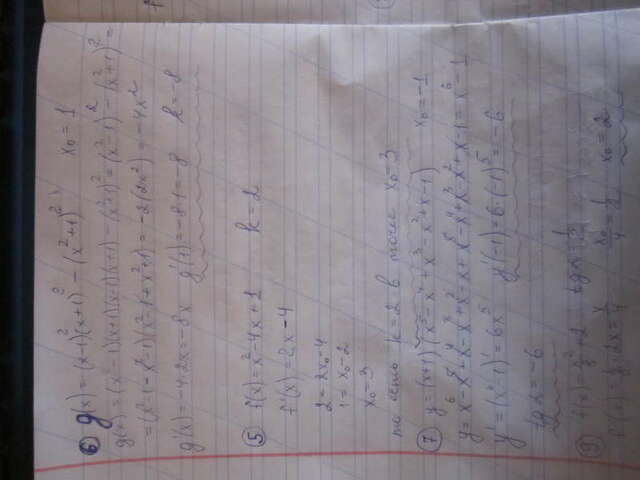 ⑥ g(x) = (x-1)²(x+1)² - (x²+1)²; x₀ = 1
g(x) = (x-1)(x+1)(x-1)(x+1) - (x²+1)² = (x²-1)² - (x²+1)² =
= (x²-1-x²-1)(x²-1+x²+1) = -2(2x²) = -4x²
g'(x) = -4·2x = -8x g'(1) = -8·1 = -8 k = -8
⑤ f(x) = x²-4x+1 k = 2
f'(x) = 2x-4
2 = 2x₀-4
1 = x₀-2
x₀ = 3
k = 2 в точке x₀ = 3
⑦ y = (x+1)(x⁵-x⁴+x³-x²+x-1) x₀ = -1
y = x⁶-x⁵+x⁴-x³+x²-x+x⁵-x⁴+x³-x²+x-1 = x⁶-1
y' = (x⁶-1)' = 6x⁵ y'(-1) = 6·(-1)⁵ = -6
tg α = -6
x₀ = 2